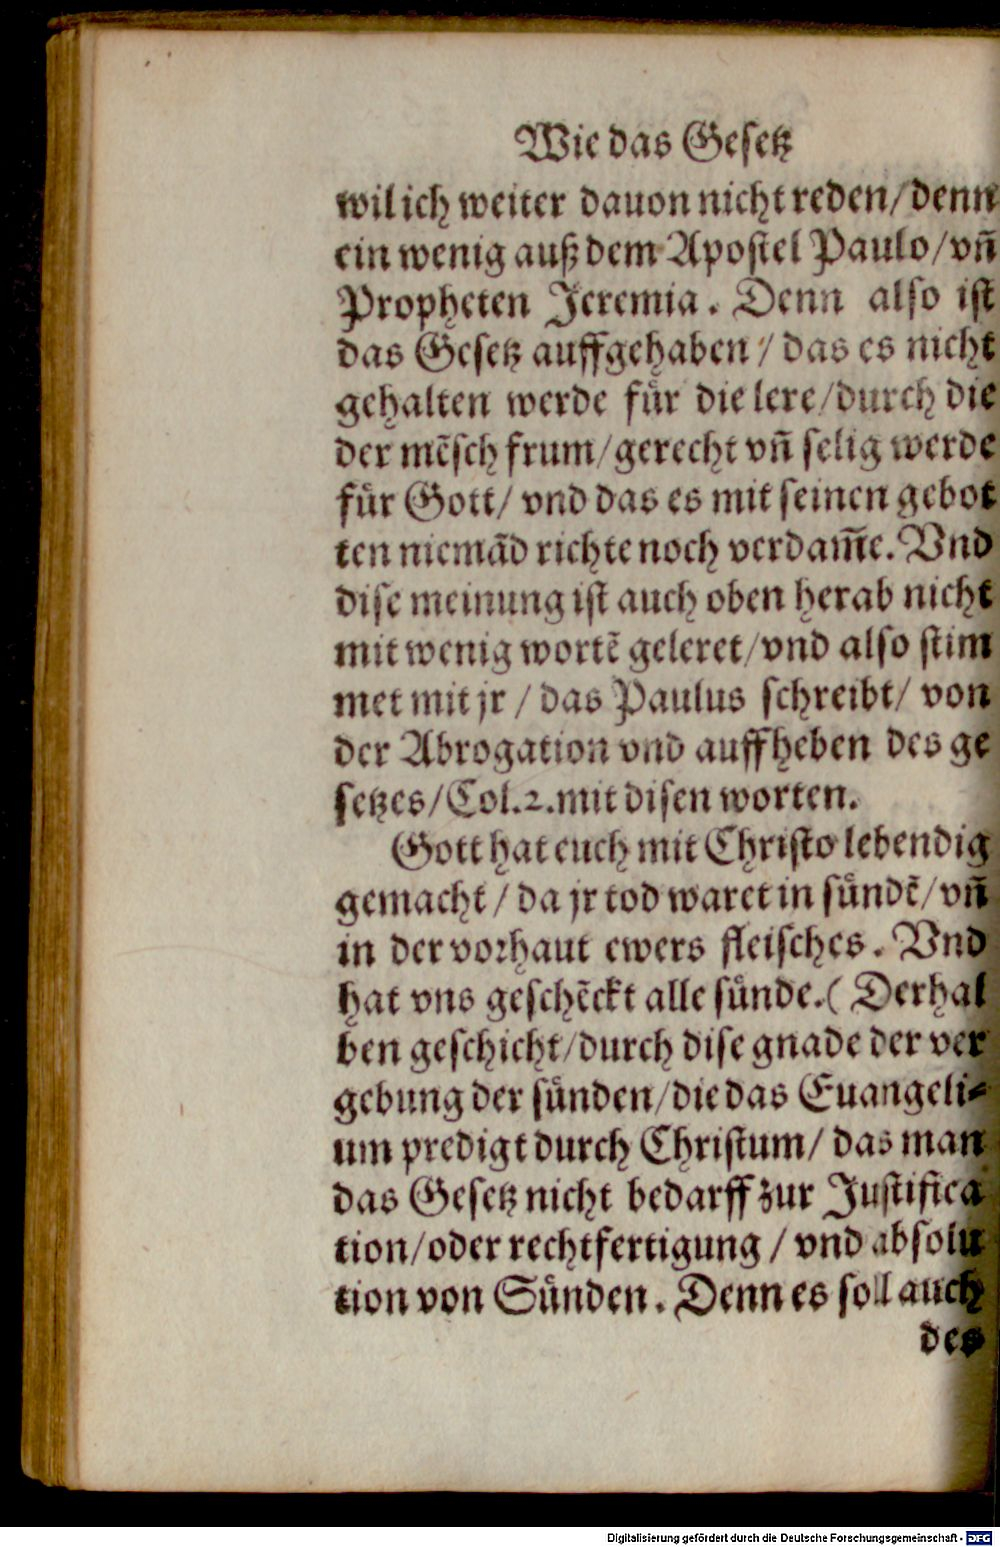 Wie das Gesetz
wil ich weiter dauon nicht reden/ denn
ein wenig auß dem Apostel Paulo/ vñ
Propheten Jeremia. Denn also ist
das Gesetz auffgehaben / das es nicht
gehalten werde für die lere/ durch die
der mẽsch frum/ gerecht vñ selig werde
für Gott/ vnd das es mit seinen gebot
ten niemãd richte noch verdam̃e. Vnd
dise meinung ist auch oben herab nicht
mit wenig wortẽ geleret/ vnd also stim
met mit jr / das Paulus schreibt/ von
der Abrogation vnd auffheben des ge
setzes/ Col. 2. mit disen worten.
Gott hat euch mit Christo lebendig
gemacht / da jr tod waret in sündẽ/ vñ
in der vorhaut ewers fleisches. Vnd
hat vns geschẽckt alle sünde. ( Derhal
ben geschicht/ durch dise gnade der ver
gebung der sünden/ die das Euangeli-
um predigt durch Christum/ das man
das Gesetz nicht bedarff zur Justifica
tion/ oder rechtfertigung / vnd absolu
tion von Sünden. Denn es soll auch
des
Digitalisierung gefördert durch die Deutsche Forschungsgemeinschaft - DFG